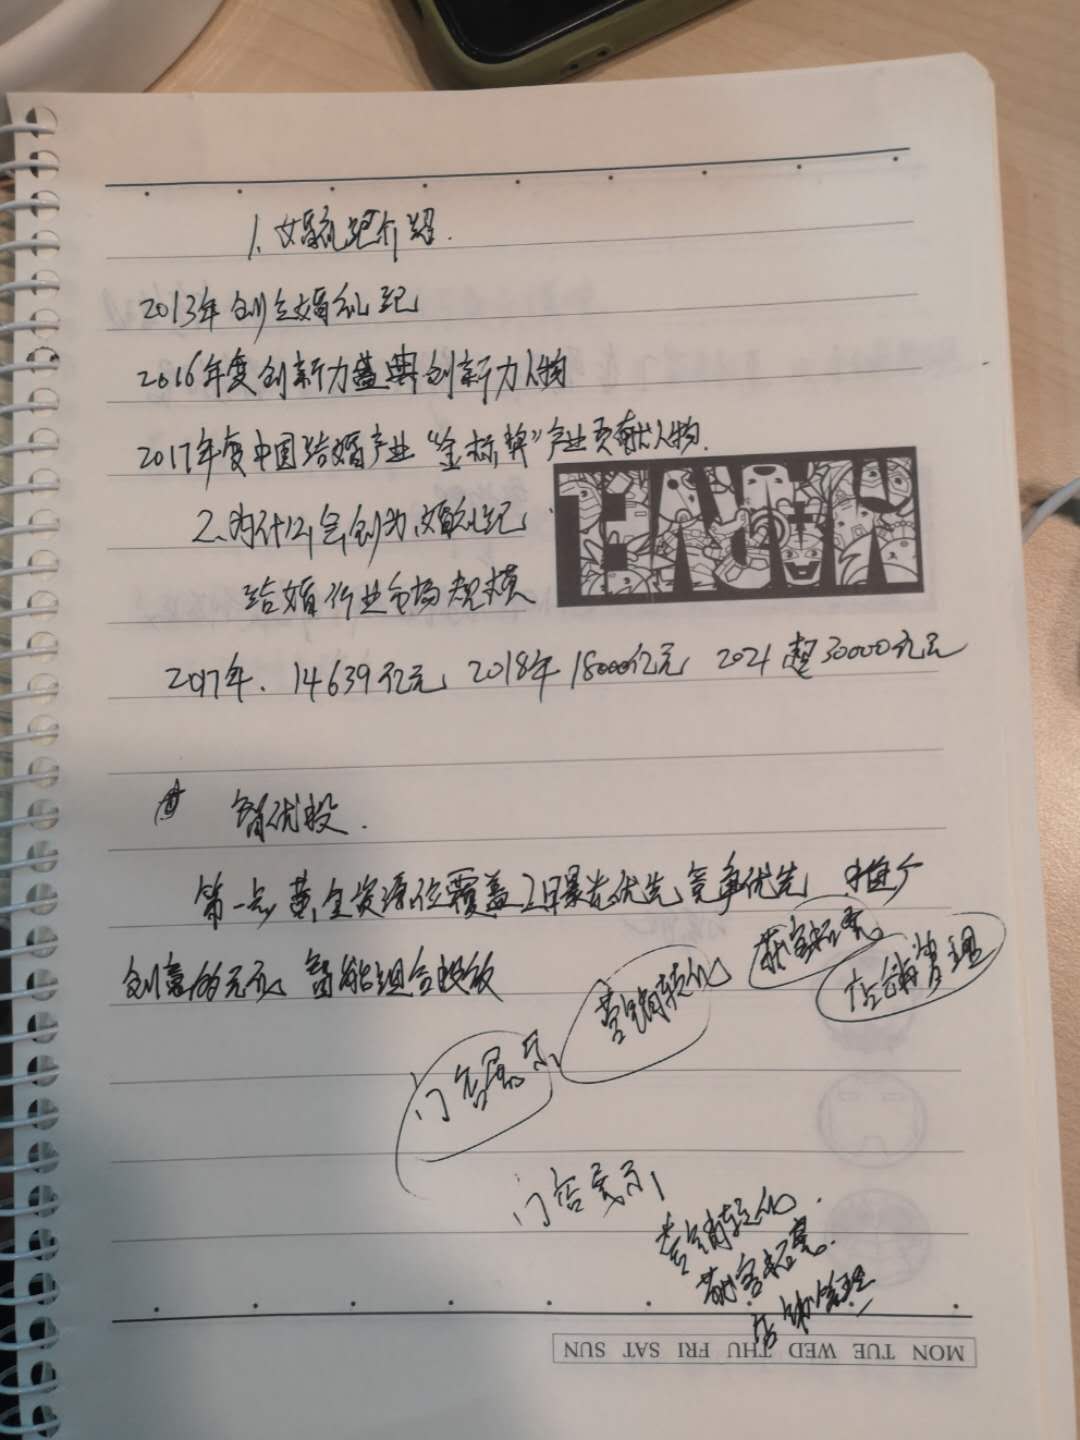 1、婚礼纪介绍.
2013年创立婚礼纪
2016年度创新力盛典创新力人物
2017年度中国结婚产业“金标奖”产业贡献人物.
2、为什么会创为婚礼纪
结婚行业市场规模
2017年、14639亿元 2018年18000亿元 2021超30000亿元
智优投.
第一点 黄金资源位覆盖 曝光优先 竞争优先 推广
创意的元元 智能组合投放
获客拓客
店铺管理
营销转化
门店展示
门店展示
营销转化
获客拓客
店铺管理
MON TUE WED THU FRI SAT SUN